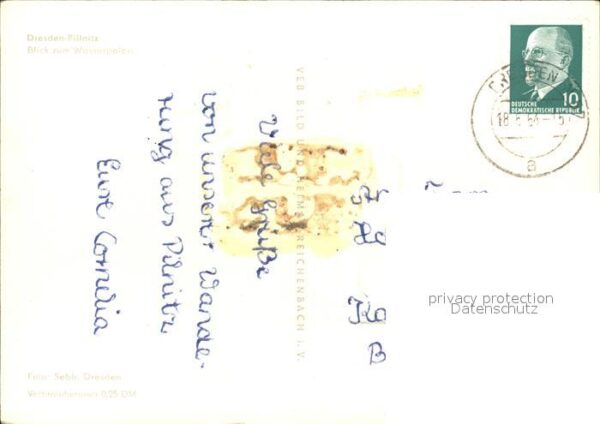 Dresden-Pillnitz
Blick zum Wasserpalais
VEB BILD UND HEIMAT REICHENBACH i. V.
Viele Grüße
von unserer Wande-
rung aus Pilnitz
Eure Cornelia
DRESDEN
18.5.64-15
a
10
DEUTSCHE
DEMOKRATISCHE REPUBLIK
privacy protection
Datenschutz
Foto: Sebb, Dresden
Verbraucherpreis 0,25 DM